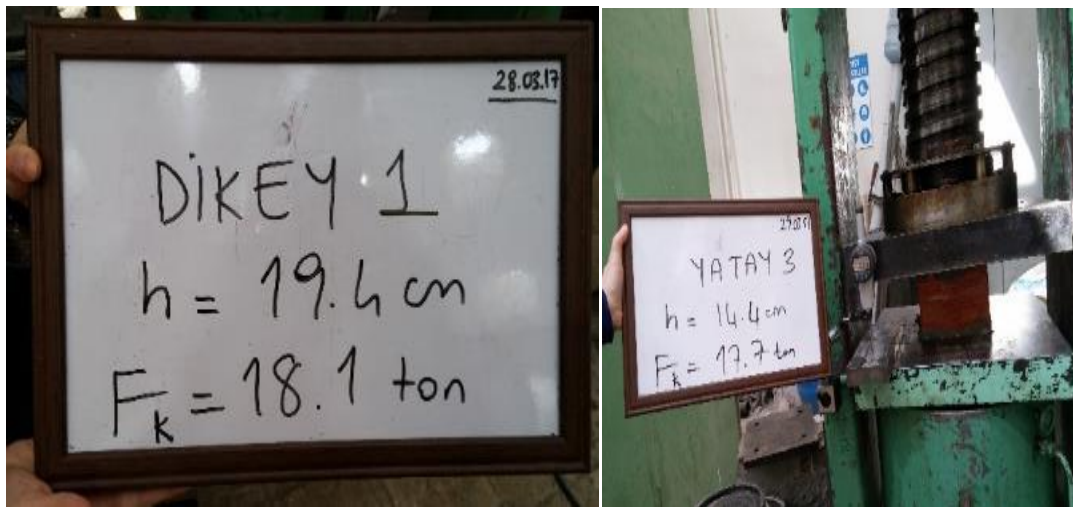 28.03.17
DİKEY 1
h = 19.4 cm
Fk = 18.1 ton
YATAY 3
h = 14.4 cm
Fk = 17.7 ton